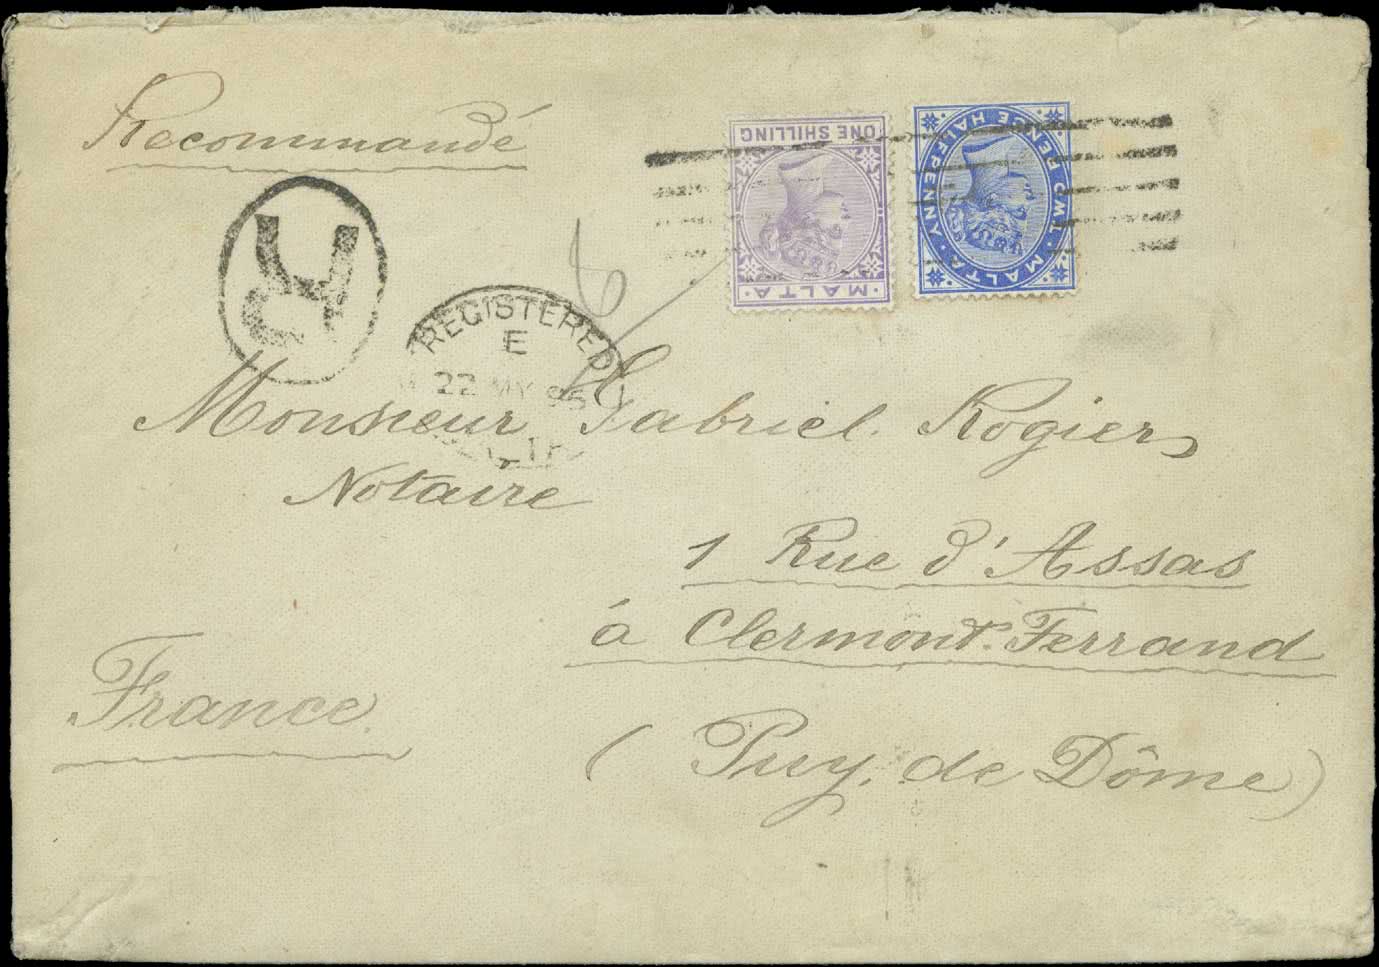 Recommandé
ONE SHILLING
MALTA
TWO PENCE HALFPENNY · MALTA
R
REGISTERED
E
22 MY 95
Monsieur Gabriel Rogier
Notaire
1 Rue d'Assas
à Clermont-Ferrand
France
(Puy, de Dôme)